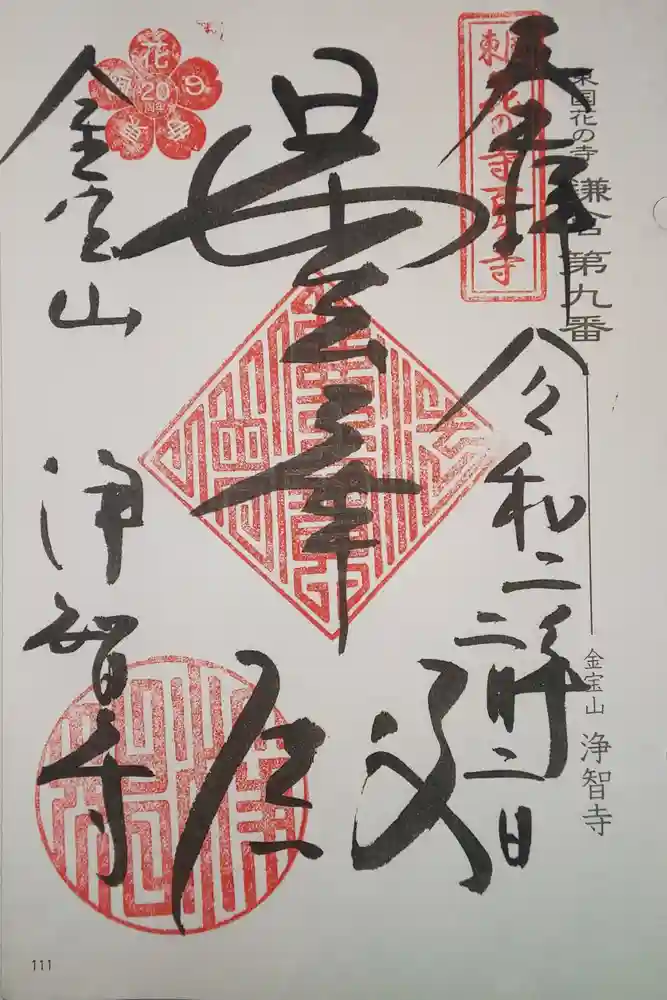 東国花の寺 鎌倉第九番
金宝山 浄智寺
奉拝
令和二年
二月二日
東国花の寺百ヶ寺
曇華殿
花の
20
周年
金宝山
浄智寺
111